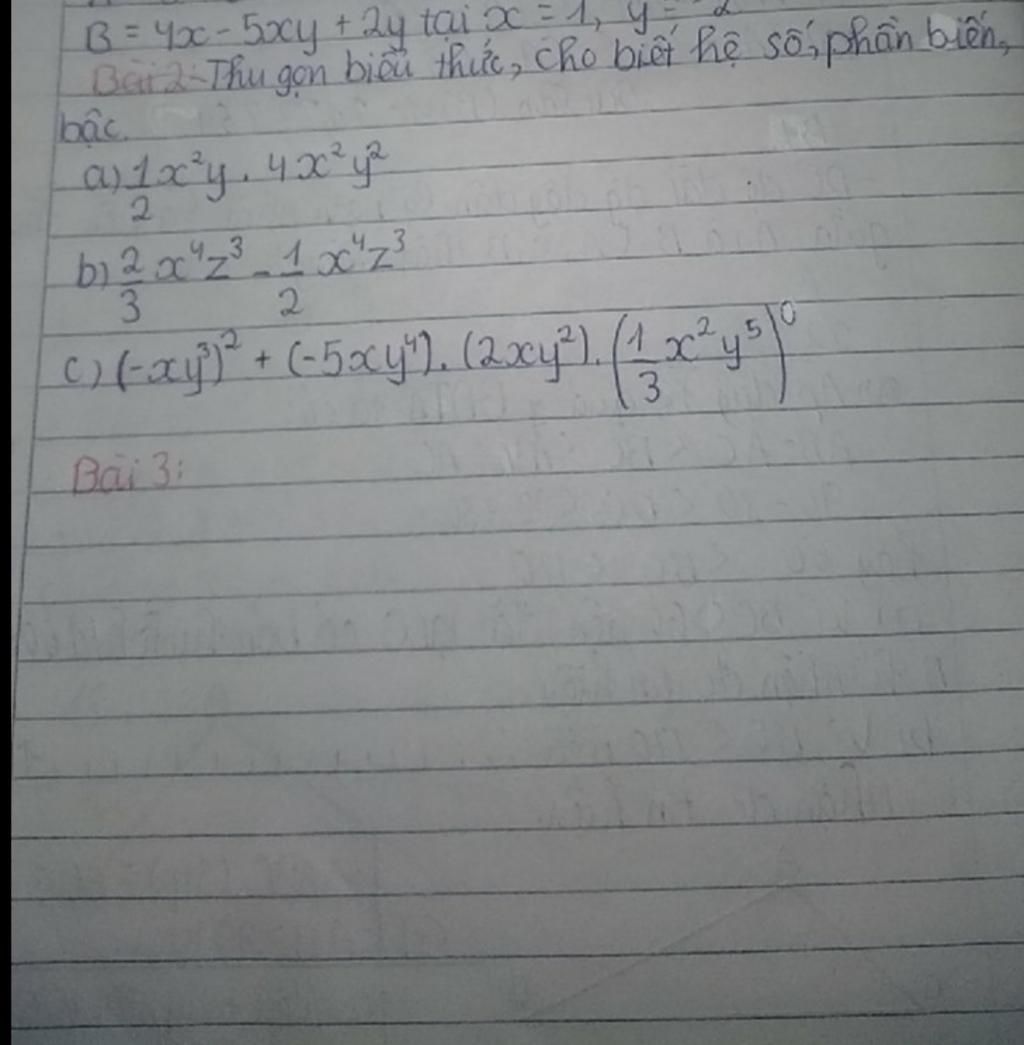 B = 4x - 5xy + 2y tại x = 1, y =
Bài 2: Thu gọn biểu thức, cho biết hệ số, phần biến,
bậc.
a) 1/2 x²y . 4x²y²
b) 2/3 x⁴z³ - 1/2 x⁴z³
c) (-xy³)² + (-5xy⁴).(2xy²).(1/3 x²y⁵)⁰
Bài 3: